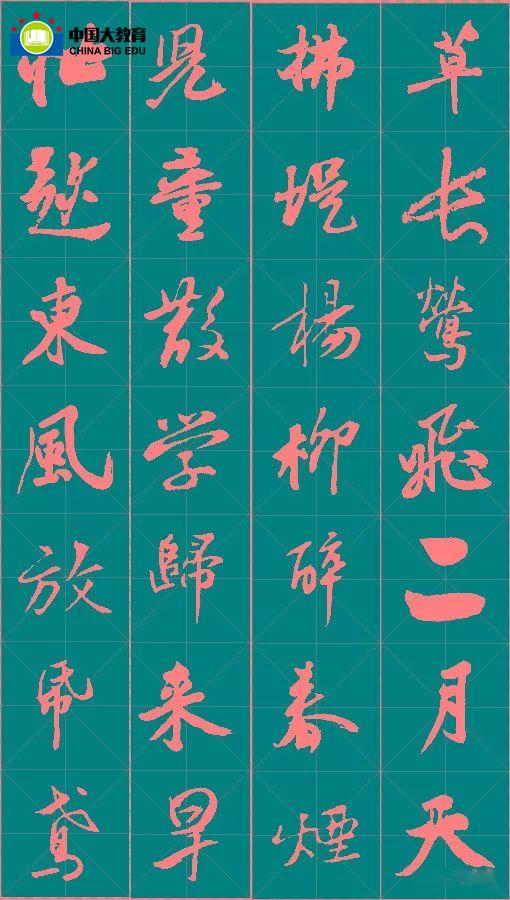 中国大教育
CHINA BIG EDU
草长鶯飛二月天
拂堤楊柳醉春煙
兒童散学歸来早
忙趂東風放帋鳶